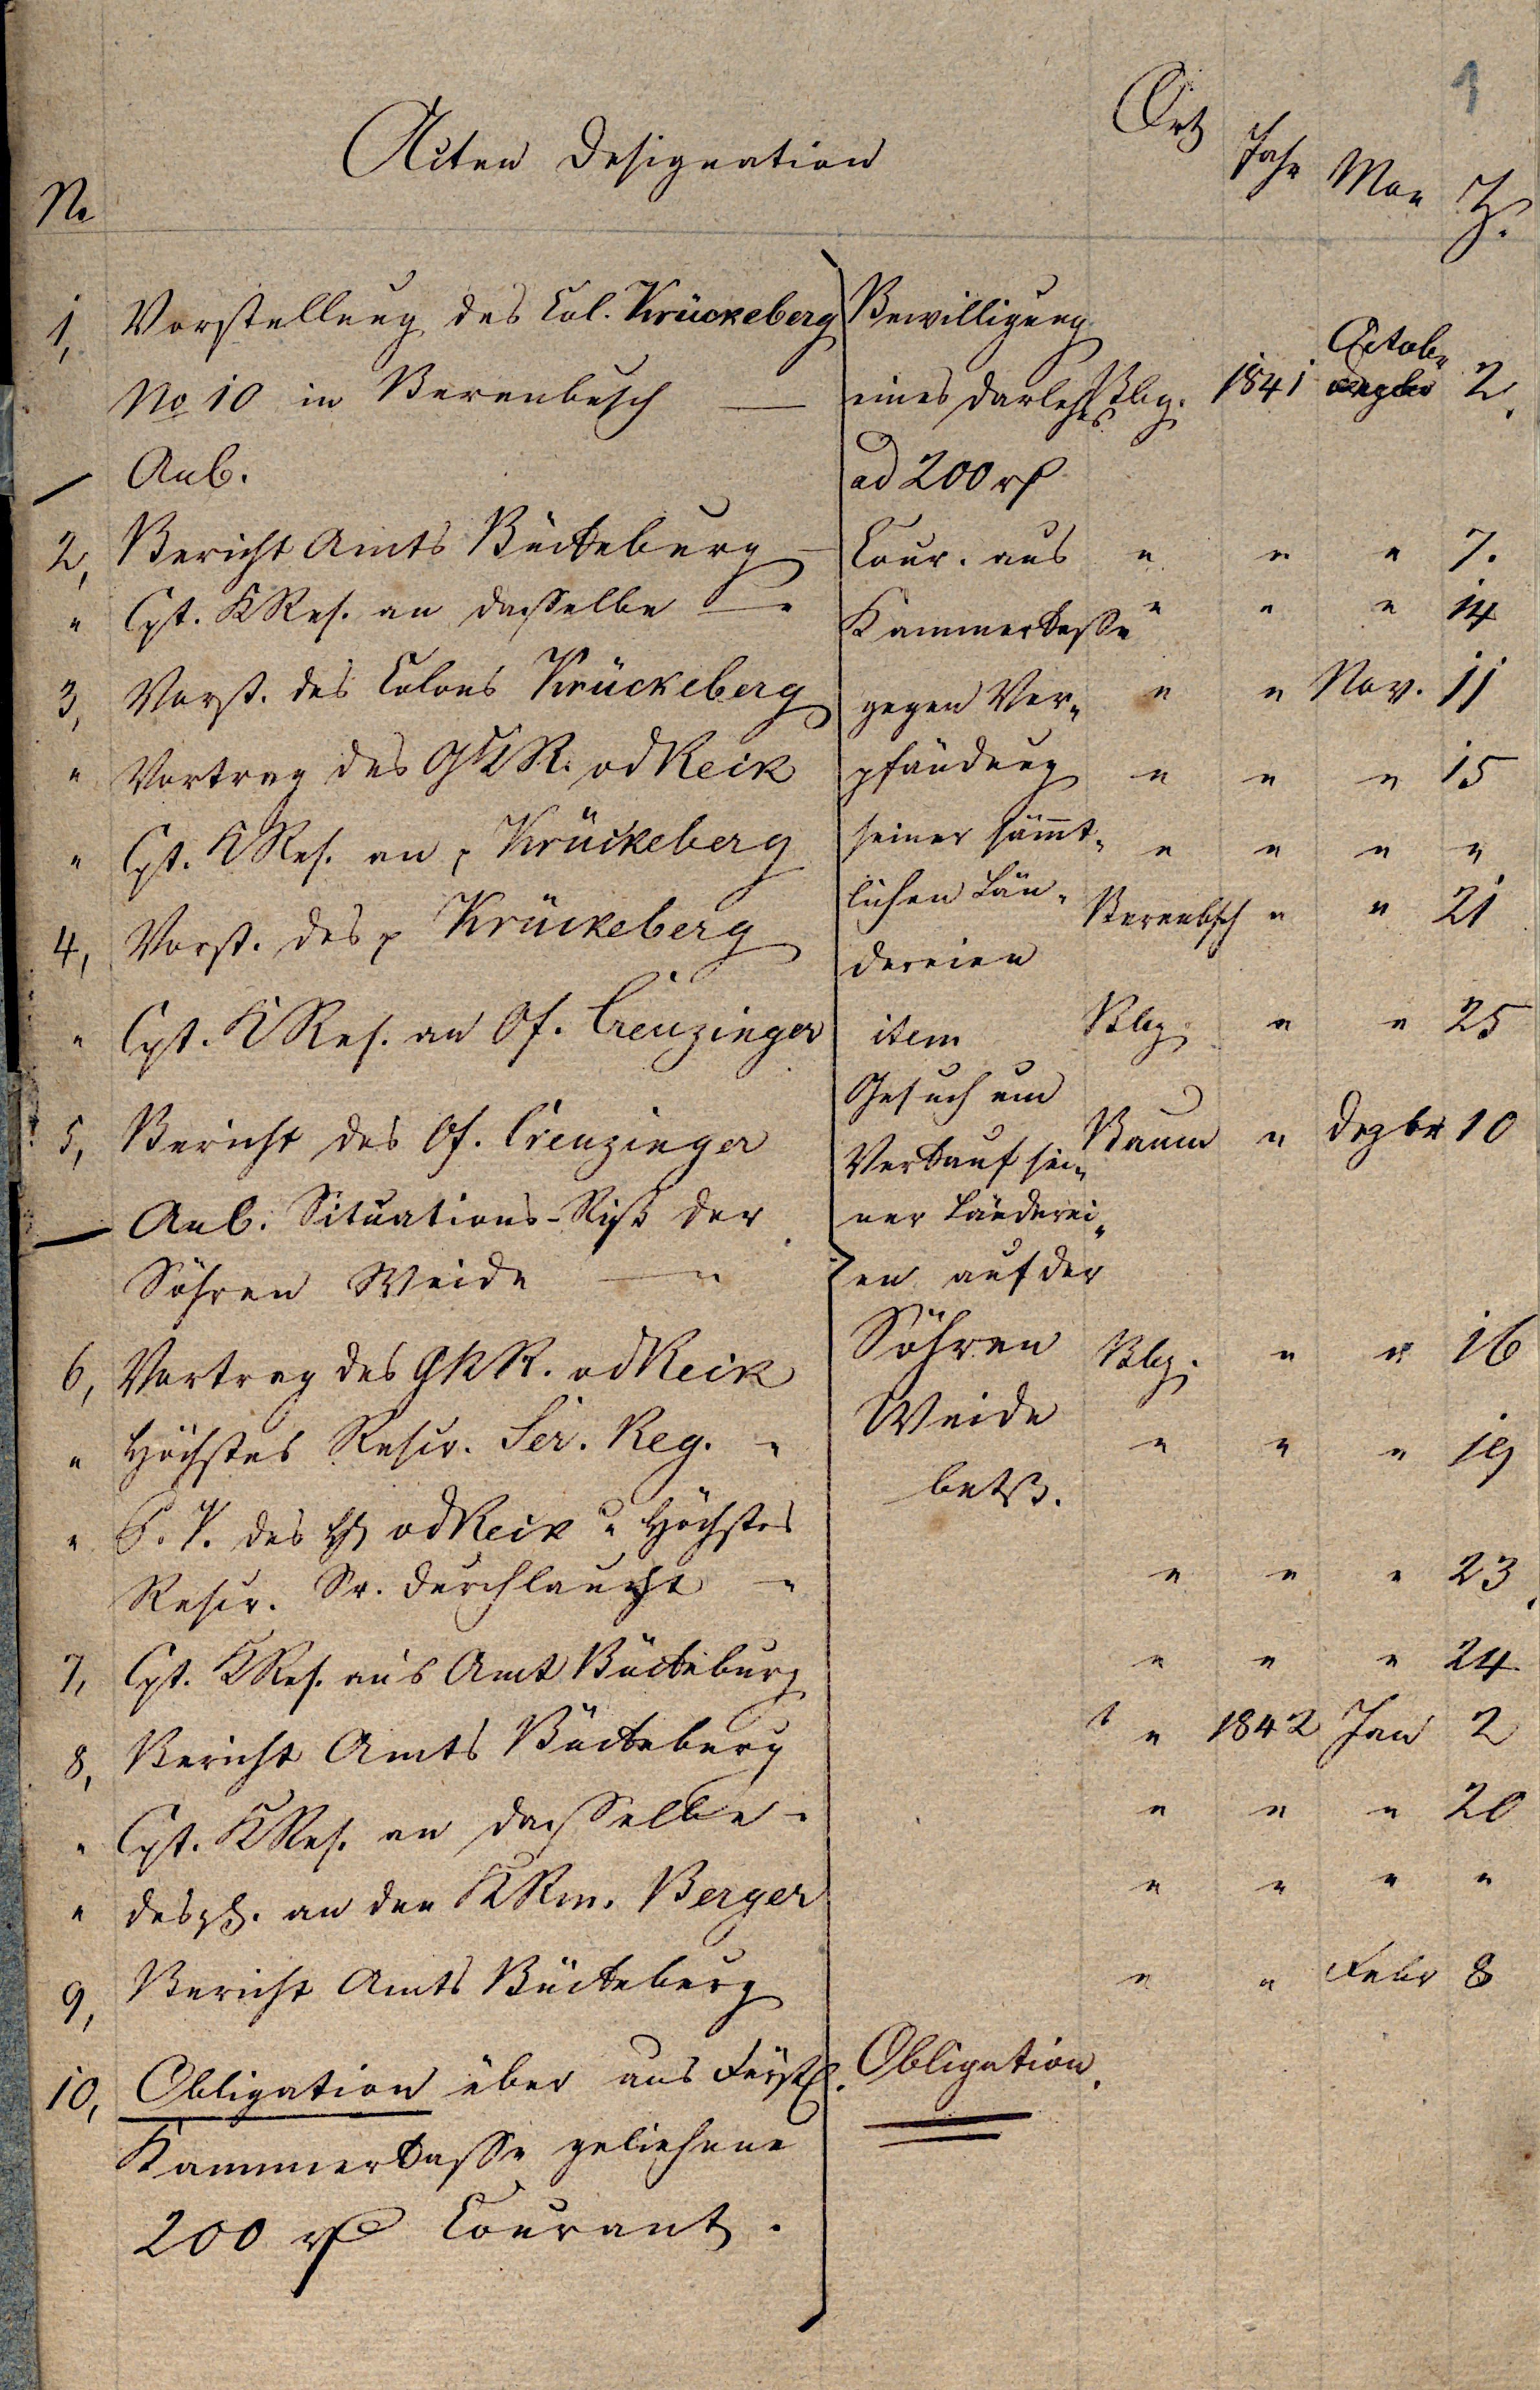 1
No
Acten Designation
Ort
Jahr
Mon
T.
1, Vorstellung des Col. Krückeberg
Bewilligung
No 10 in Berenbusch —
eines Darlehes Bbg. 1841 Octobr 2.
Anl.
ad 200 rf
2, Bericht Amts Bückeburg —
Cour. aus " " " 7.
" Cpt. KRes. an dasselbe — "
Kammerkasse " " " 14
3, Vorst. des Colons Krückeberg
gegen Ver- " " Nov. 11
" Vortrag des GKR. v d Reck
pfändung " " " 15
" Cpt. KRes. an p Krückeberg
seiner sämt- " " " "
4, Vorst. des p Krückeberg
lichen Län- Berenbsch " " 21
dereien
" Cpt. KRes. an Of. Creuzinger
item Bbg. " " 25
Gesuch um
5, Bericht des Of. Creuzinger
Verkauf sei- Baum " Dezbr 10
Anl. Situations-Riß der
ner Länderei-
Söhren Weide — "
en auf der
6, Vortrag des GKR. v d Reck
Söhren Bbg. " " 16
" Höchstes Rescr. Ser. Reg. "
Weide " " " 19
betr.
" P. V. des v d Reck u Höchstes
Rescr. Sr. Durchlaucht "
" " " 23.
7, Cpt. KRes. ans Amt Bückeburg
" " " 24
8, Bericht Amts Bückeburg
" 1842 Jan 2
" Cpt. KRes. an dasselbe "
" " " 20
" desgl. an den KRm. Berger
" " " "
9, Bericht Amts Bückeburg
" " Febr 8
10, Obligation über aus Fürstl.
Obligation.
Kammerkasse geliehene
200 rf Courant.